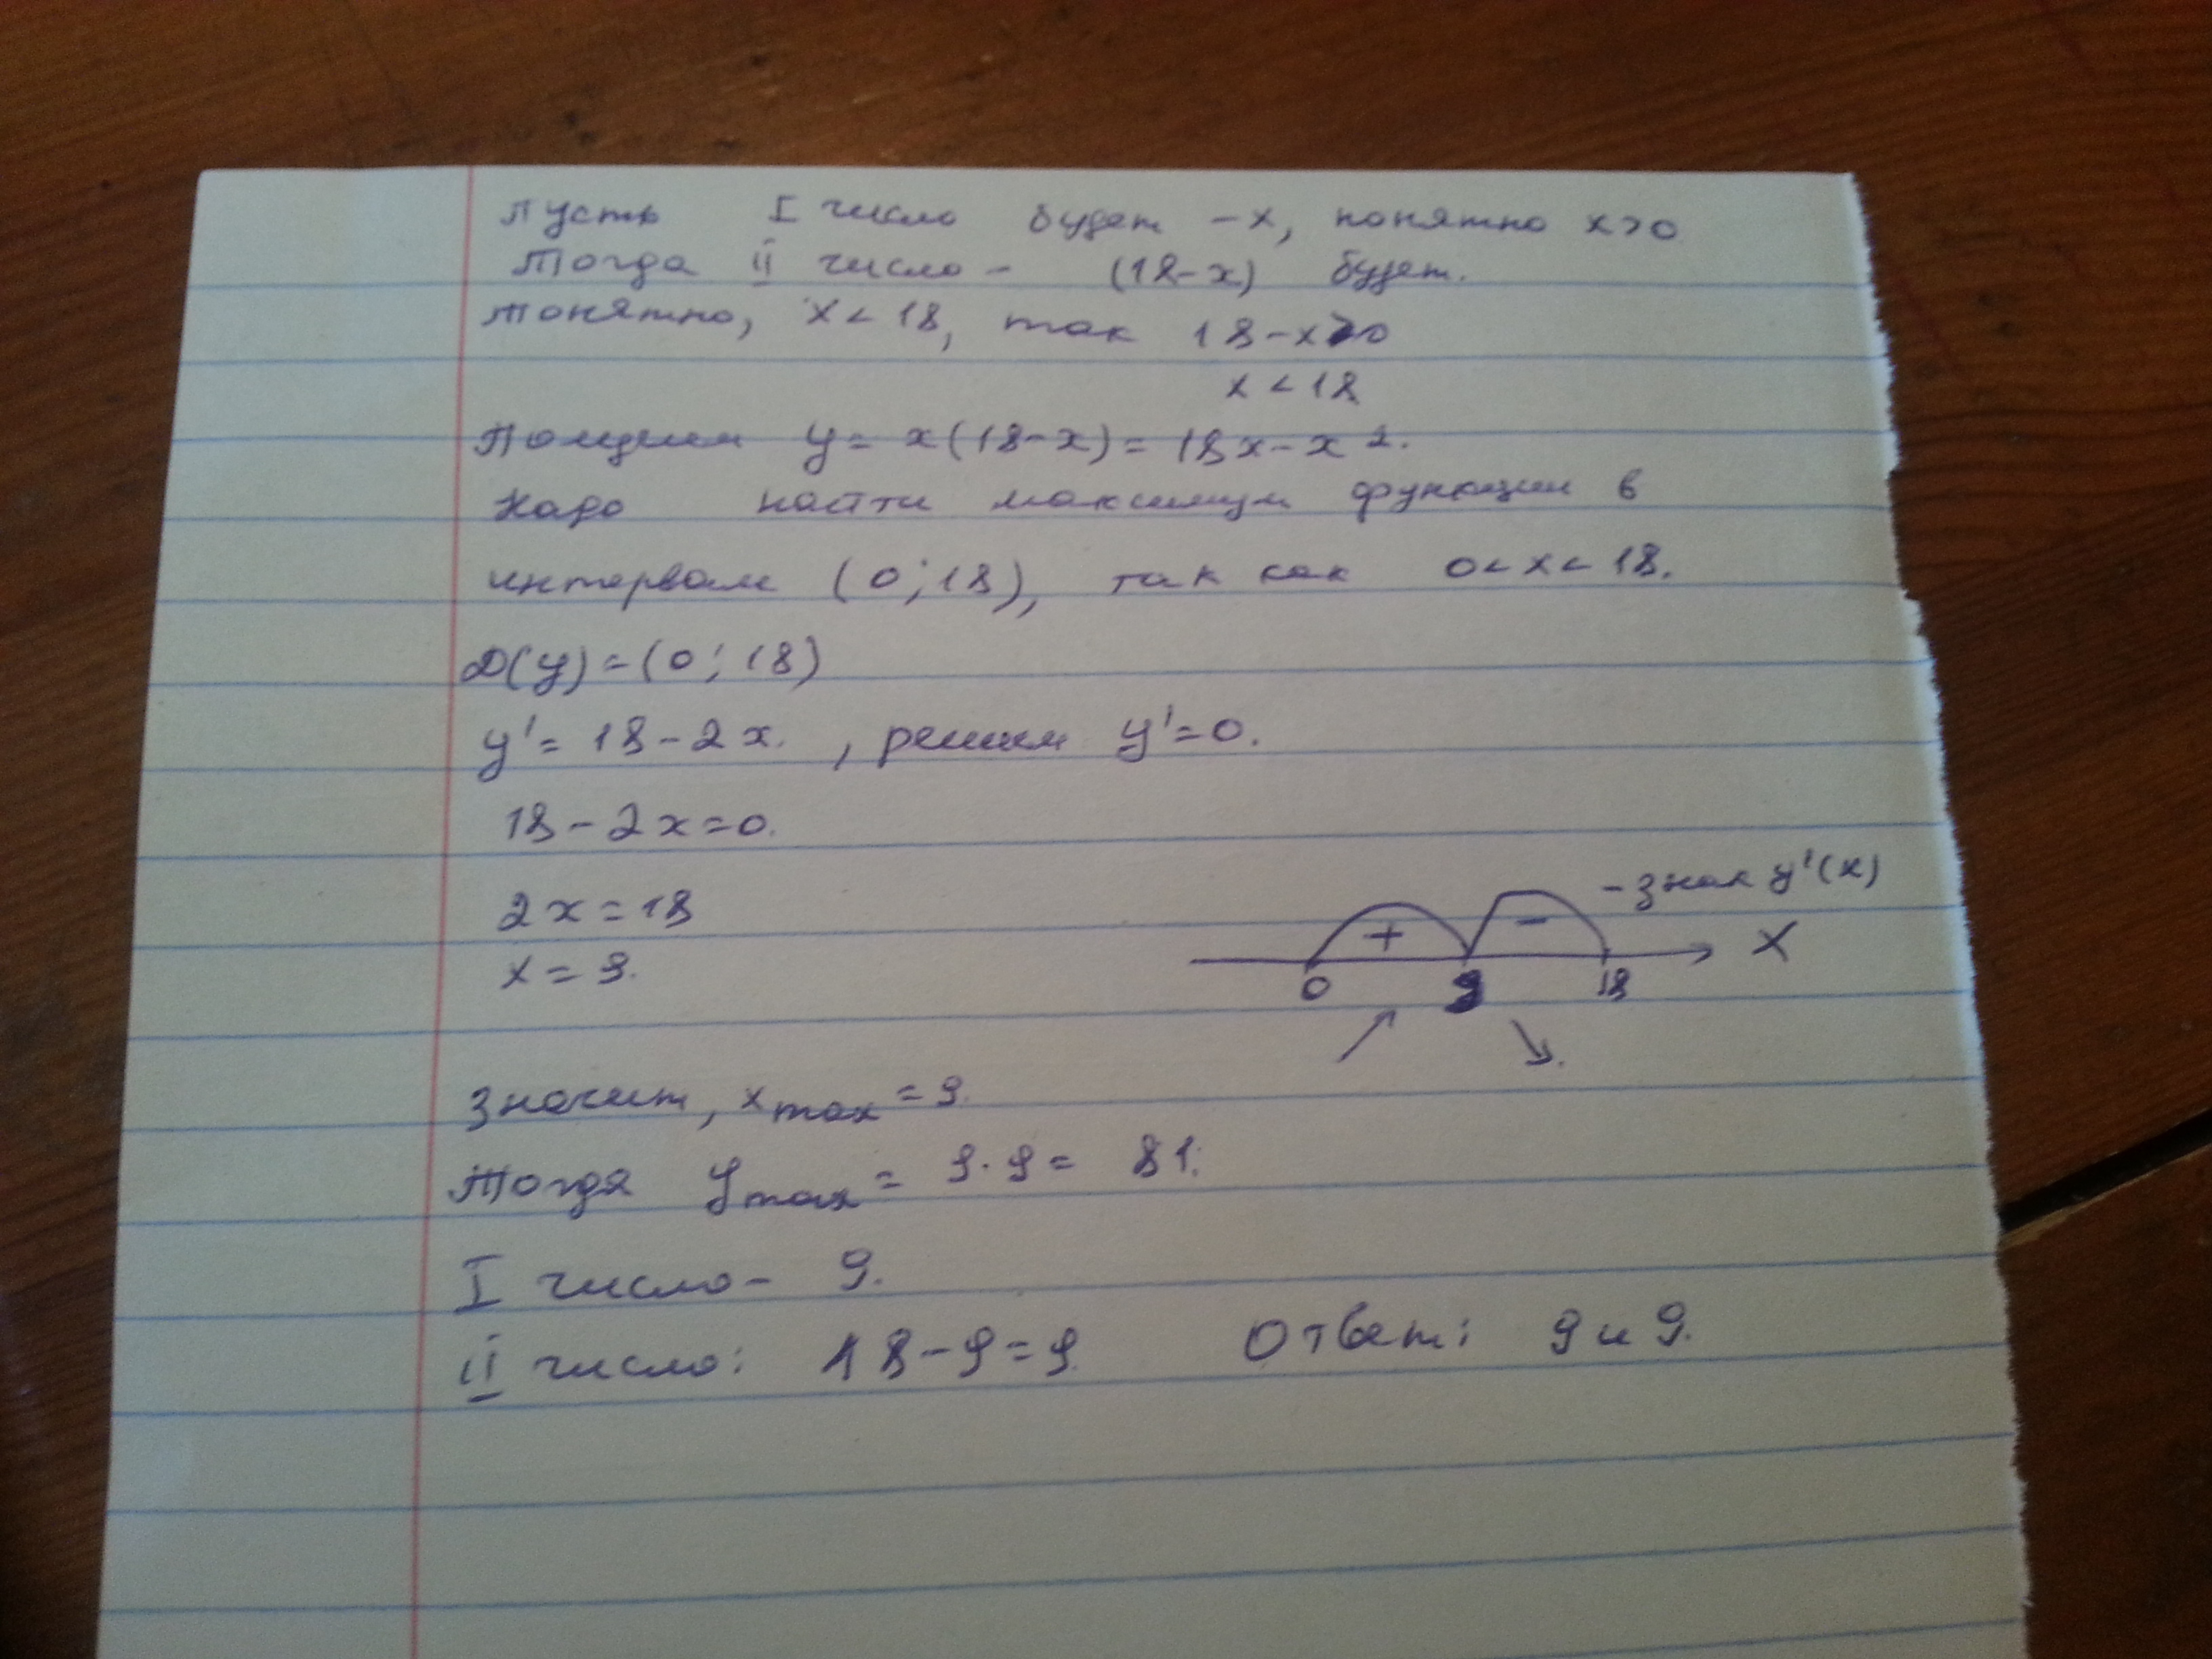 Пусть I число будет - x, понятно x>0
Тогда II число - (18-x) будет.
Понятно, x<18, так 18-x>0
x<18
Получим y = x(18-x) = 18x-x².
Надо найти максимум функции в
интервале (0;18), так как 0<x<18.
D(y)=(0;18)
y'=18-2x. , решим y'=0.
18-2x=0.
2x=18
x=9.
- знак y'(x)
+ -
0 9 18 X
Значит, xmax=9.
Тогда ymax = 9·9 = 81.
I число - 9.
II число: 18-9=9. Ответ: 9 и 9.